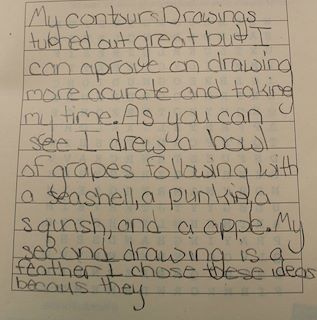 My contours Drawings
turned out great but I
can aprove on drawing
more acurate and taking
my time. As you can
see I drew a bowl
of grapes following with
a seashell, a punkin, a
sqush, and a appe. My
second drawing is a
feather I chose these ideas
becaus they